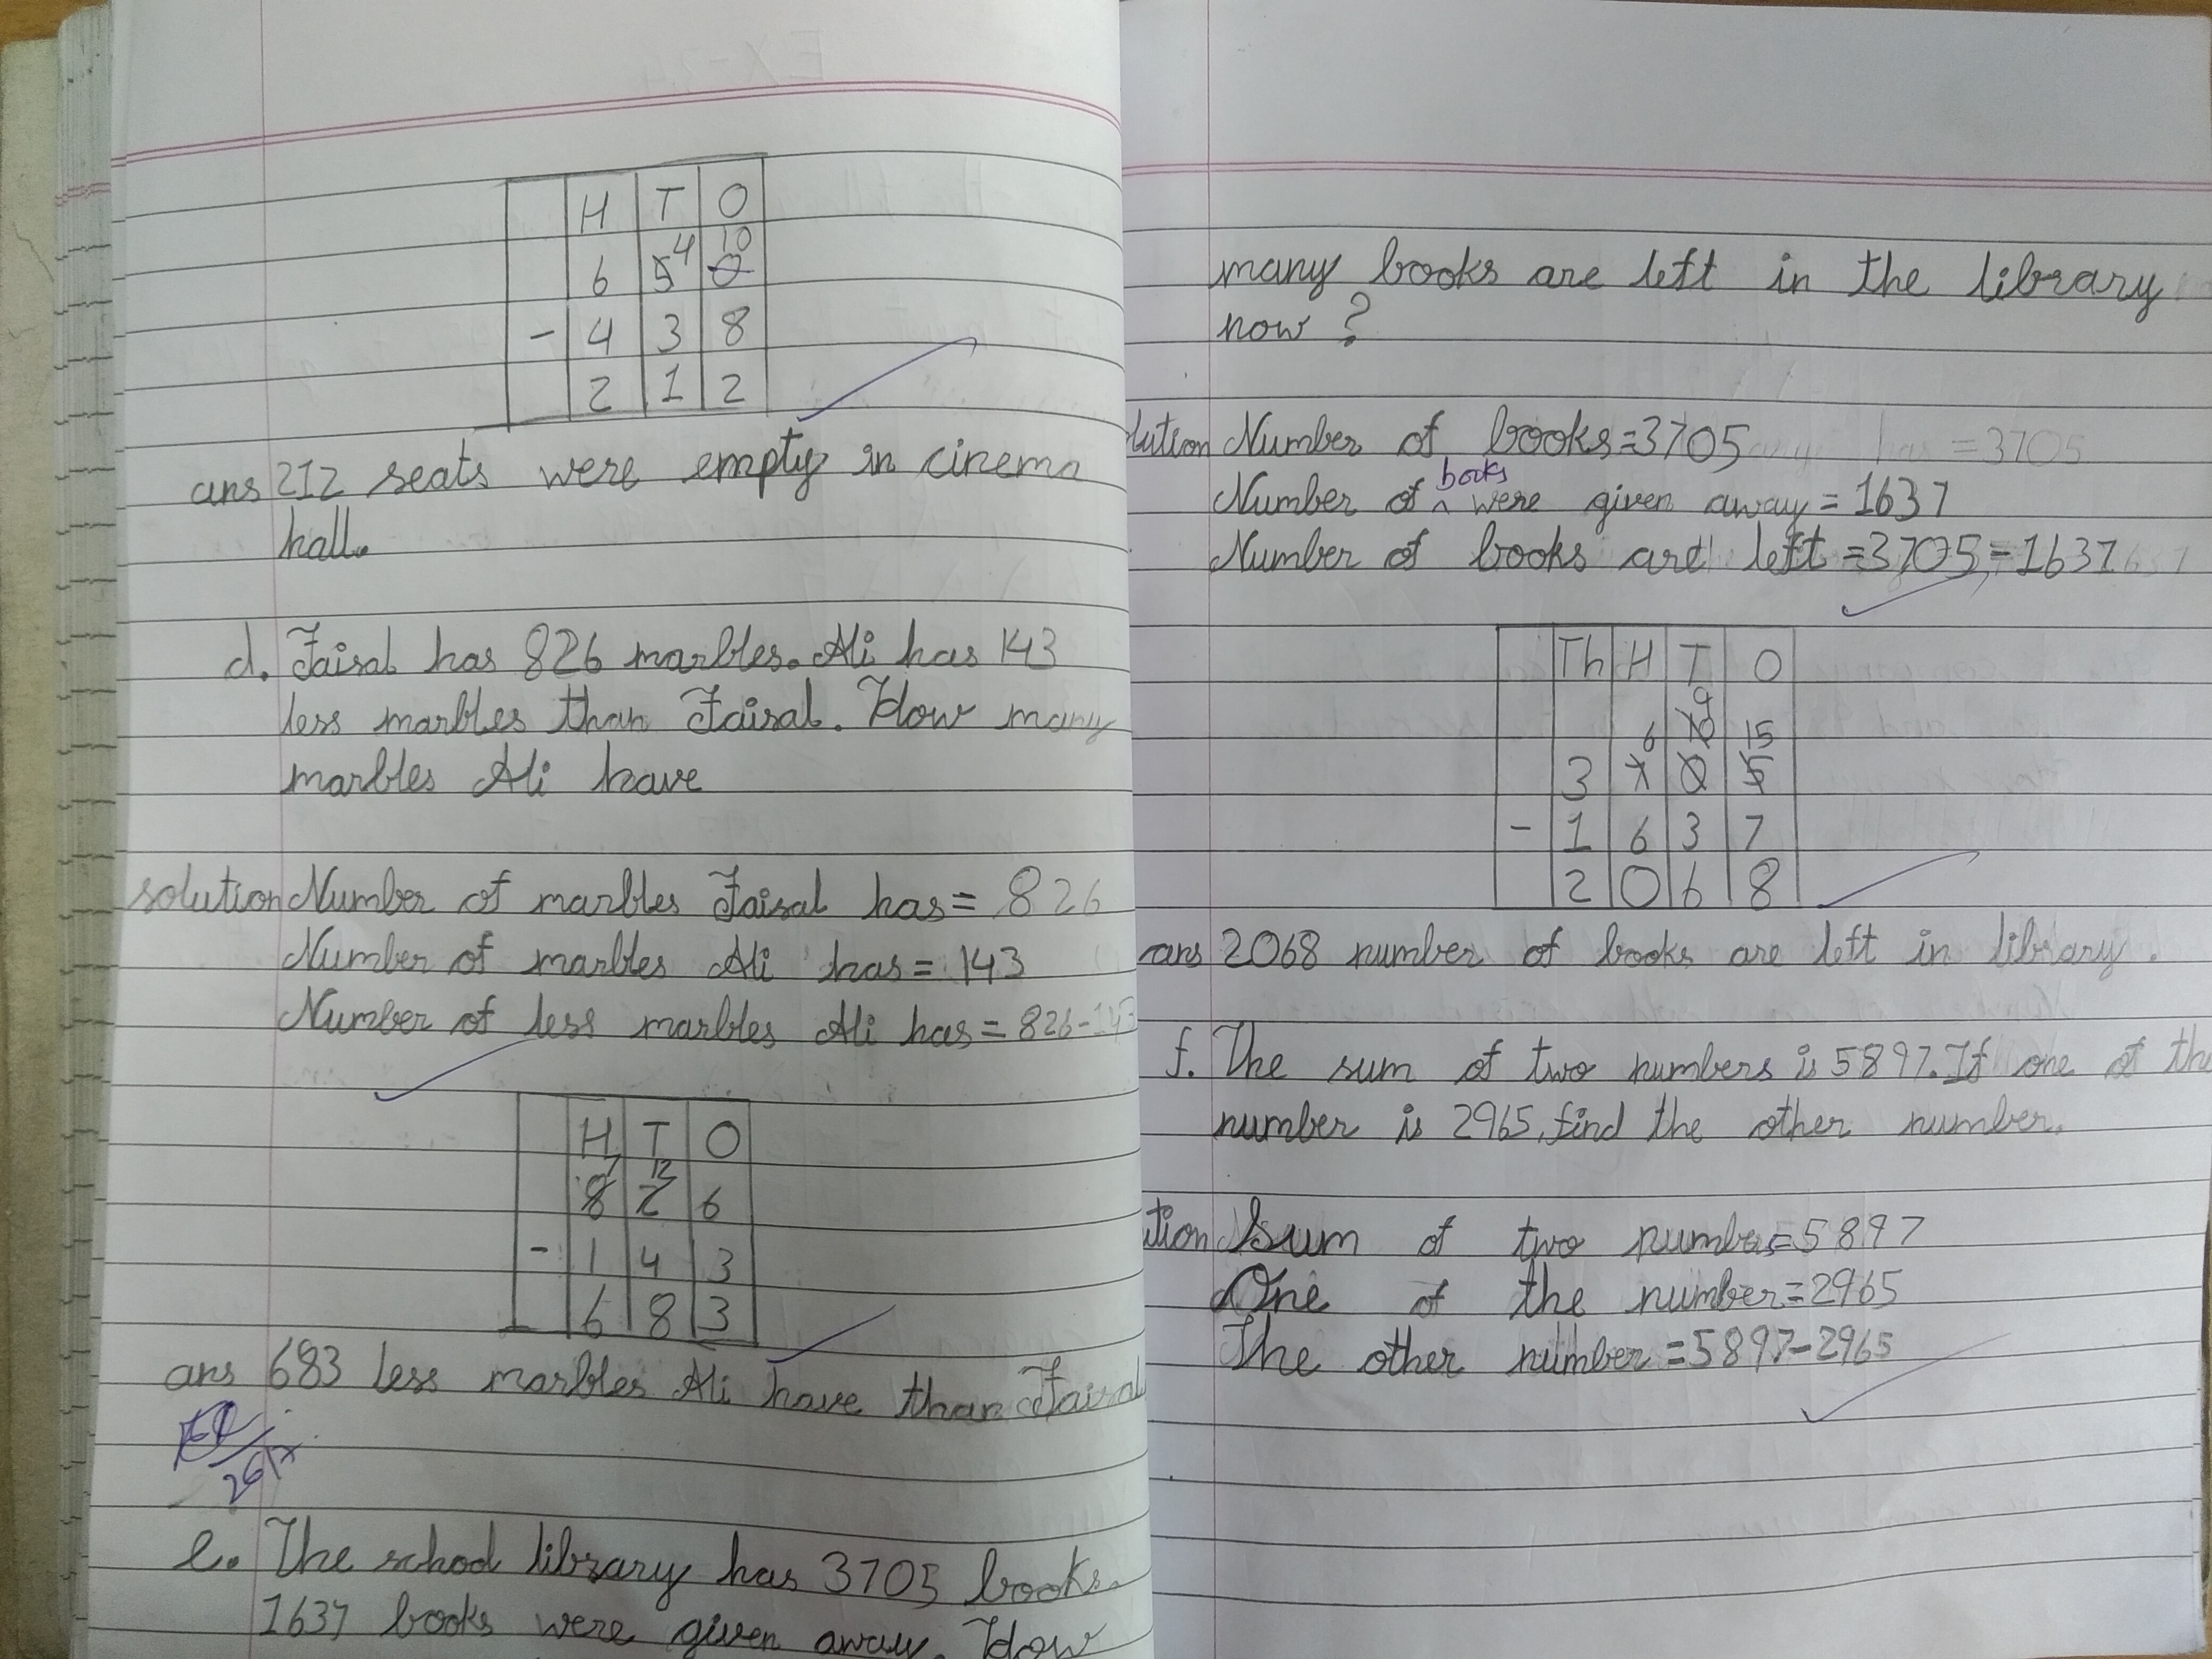 H T O
4 10
6 5 0
- 4 3 8
2 1 2
ans 212 seats were empty in cinema
hall.
d. Faisal has 826 marbles. Ali has 143
less marbles than Faisal. How many
marbles Ali have
solution Number of marbles Faisal has = 826
Number of marbles Ali has = 143
Number of less marbles Ali has = 826-143
H T O
7 12
8 2 6
- 1 4 3
6 8 3
ans 683 less marbles Ali have than Faisal
e. The school library has 3705 books.
1637 books were given away. How
many books are left in the library
now ?
lution Number of books = 3705
books
Number of ^ were given away = 1637
Number of books are left = 3705 - 1637
Th H T O
9
6 10 15
3 7 0 5
- 1 6 3 7
2 0 6 8
ans 2068 number of books are left in library.
f. The sum of two numbers is 5897. If one of the
number is 2965, find the other number.
tion Sum of two numbers = 5897
One of the number = 2965
The other number = 5897 - 2965